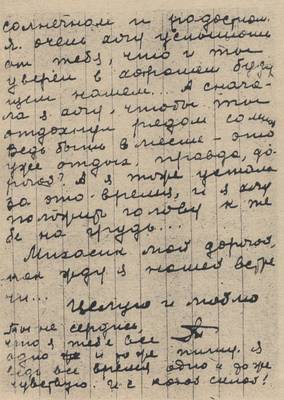 солнечном и радостном.
Я очень хочу услышать
от тебя, что и ты
уверен в хорошем буду
щем нашем... А снача-
ла я хочу, чтобы ты
отдохнул рядом со мной,
ведь быть вместе – это
уже отдых, правда, до-
рогой? А я тоже устала
за это время, и я хочу
положить голову к те
бе на грудь...
Михасик мой дорогой,
как жду я нашей встре
чи...
Целую и люблю
Ты не сердись,
что я тебе все
одно и то же пишу. Я
ведь все время одно и то же
чувствую. И с какой силой!